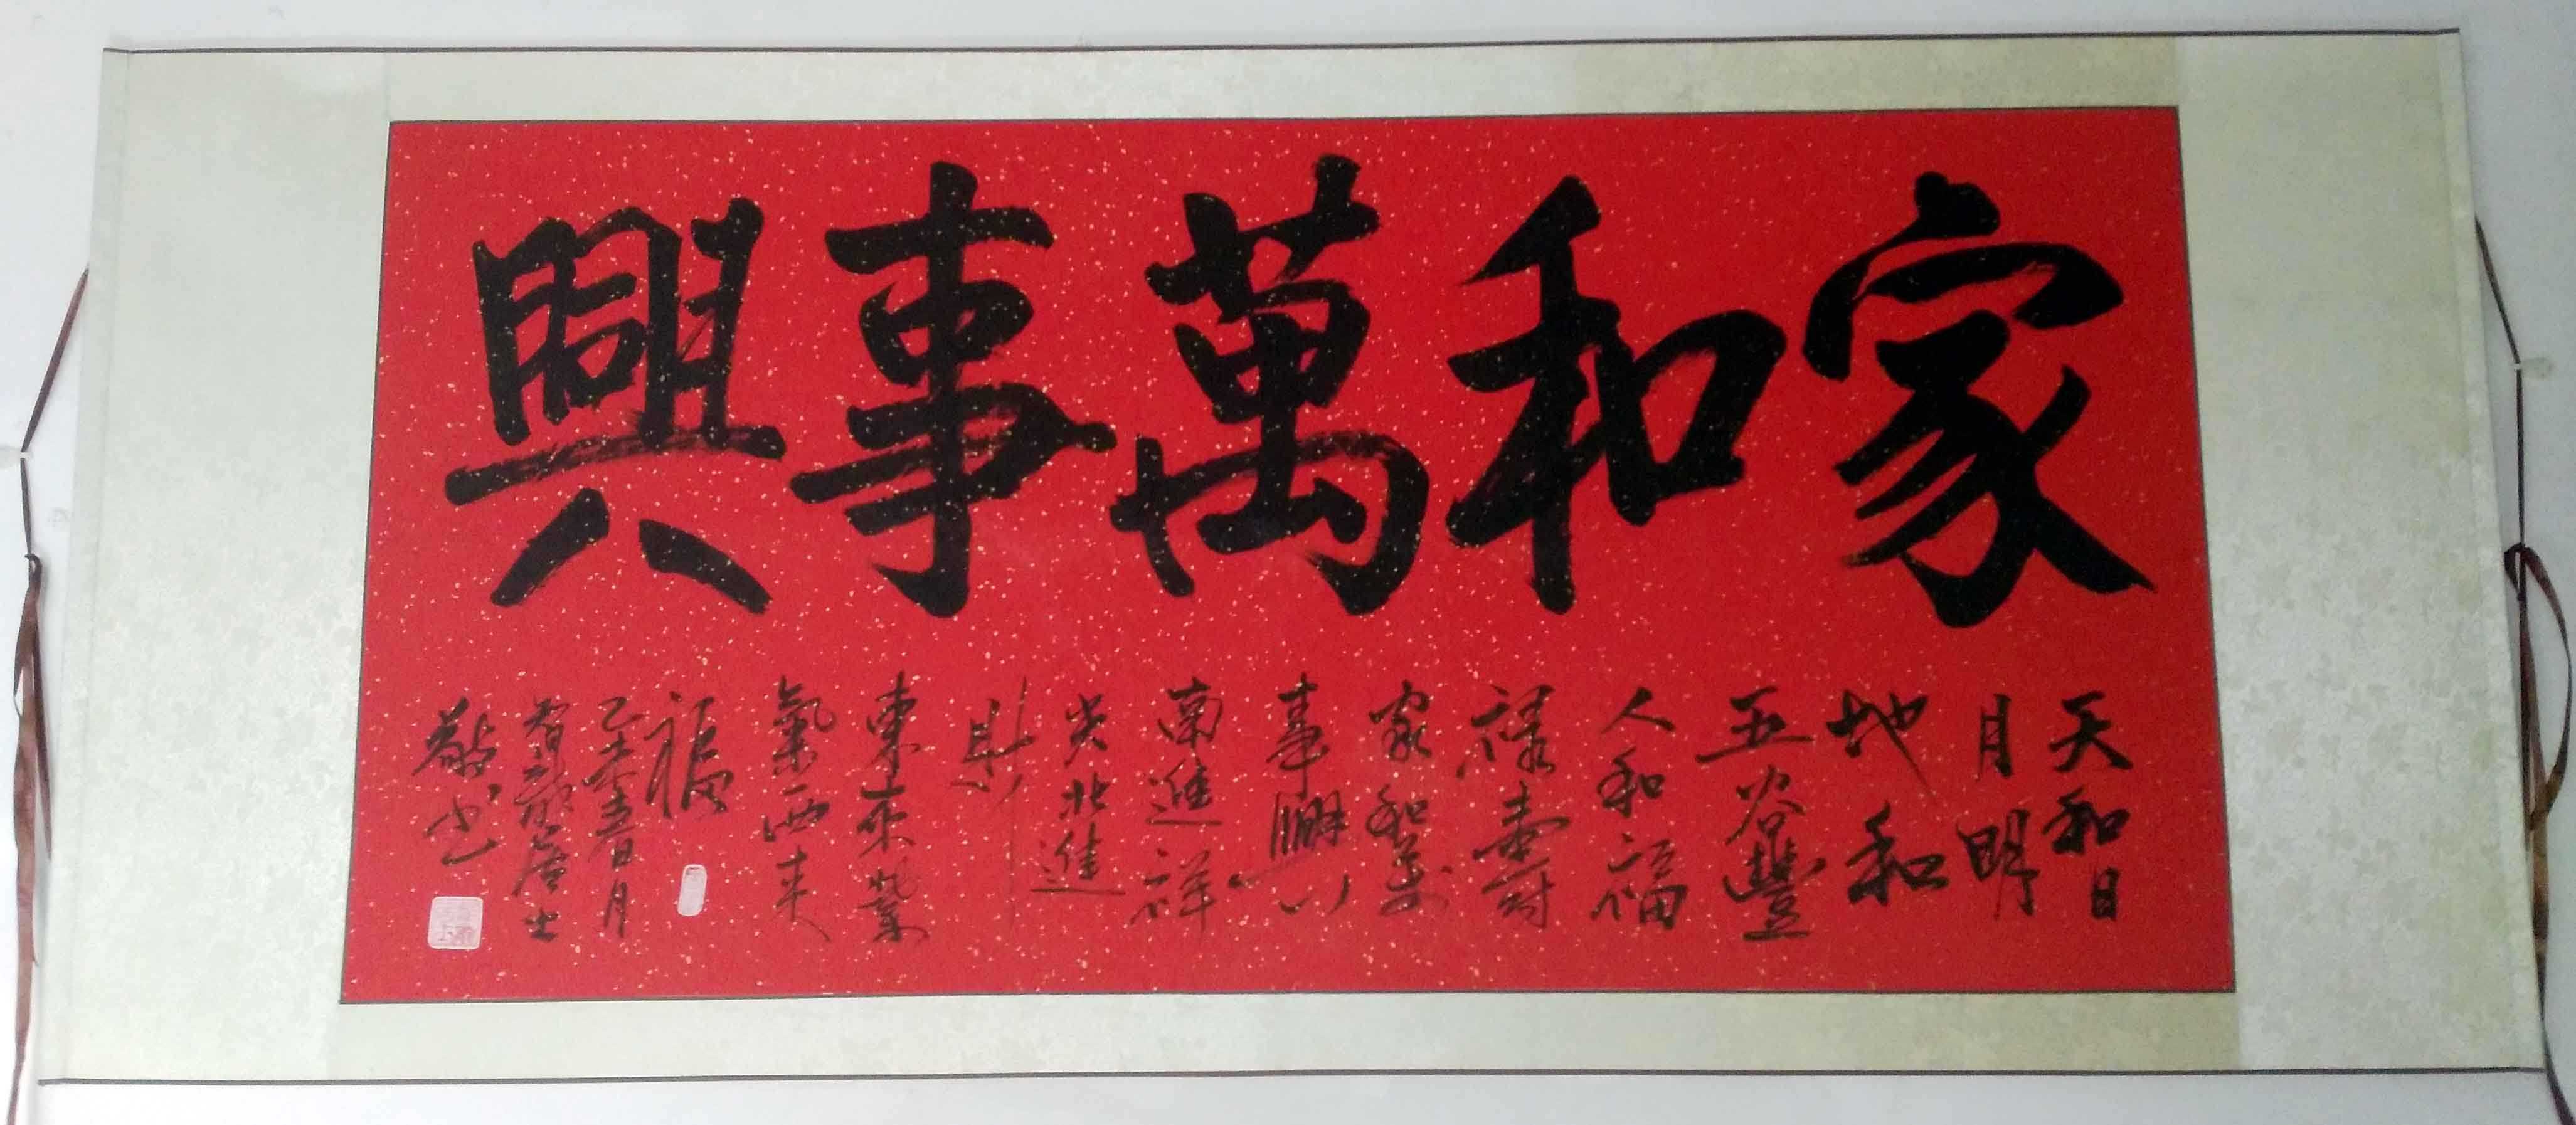 家和萬事興
天和日
月明
地和
五谷豐
人和福
祿壽
家和萬
事興
南進祥
光北進
財
東來紫
氣西来
福
乙未年 月
居士
敬书